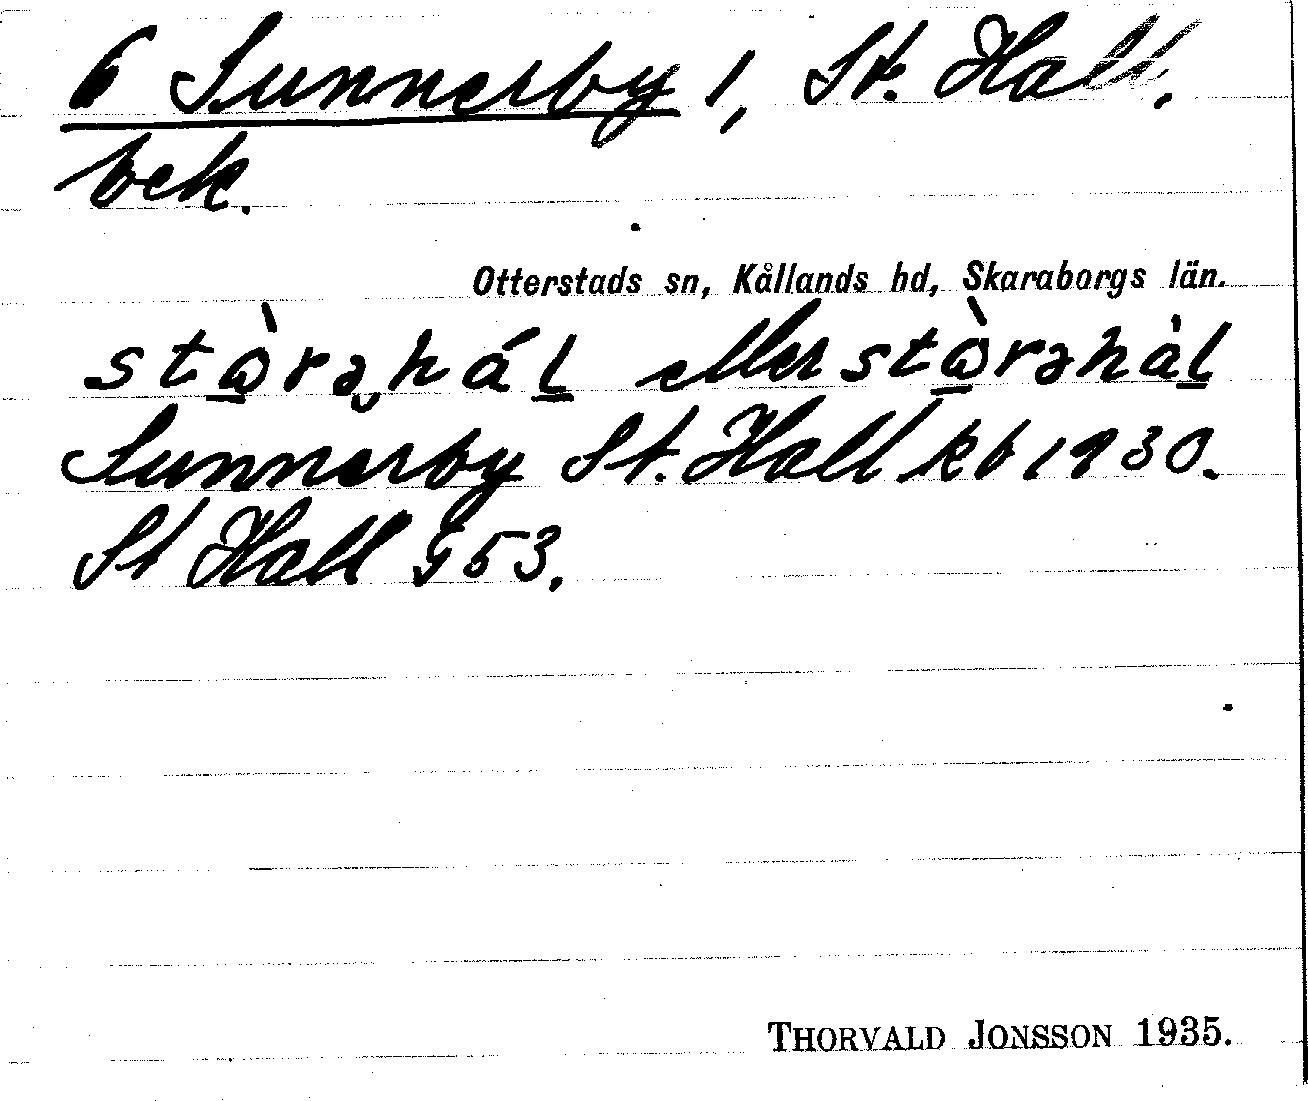 6 Sunnerby 1, St. Hall,
bek.
Otterstads sn, Kållands hd, Skaraborgs län.
stàrəhál eller stàrəhàl
Sunnerby St. Hall kb 1930.
St Hall G53.
THORVALD JONSSON 1935.